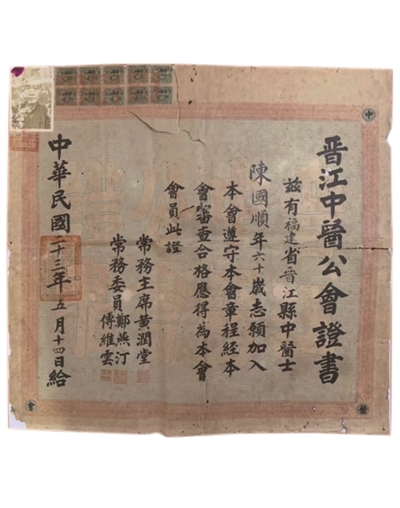 晋江中醫公會證書
兹有福建省晋江縣中醫士
陳國順年六十歲志願加入
本會遵守本會章程經本
會審查合格應得為本會
會員此證
常務主席黄潤堂
常務委員鄭燕汀
傅維雲
中華民國二十三年五月十四日給
中
醫
會